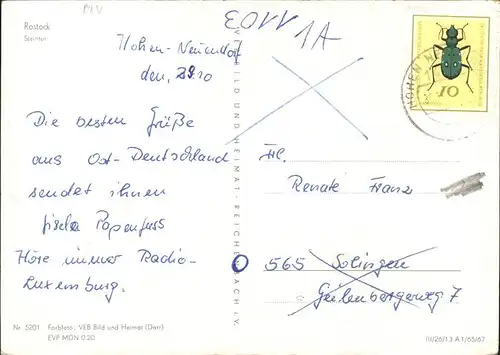 MV
Rostock
Steintor
EOVV 1A
Hohen-Neuendorf
den, 29.10
Die besten Grüße
aus Ost-Deutschland
sendet ihnen
Gisela Papenfuss
Höre immer Radio-
Luxemburg.
Nr. 5201 Farbfoto: VEB Bild und Heimat (Darr)
EVP MDN 0.20
VEB BILD UND HEIMAT · REICHENBACH I. V.
HOHEN N
10
Frl.
Renate Franz
565 Solingen
Geilenbergerweg 7
III/26/13 A 1/65/67